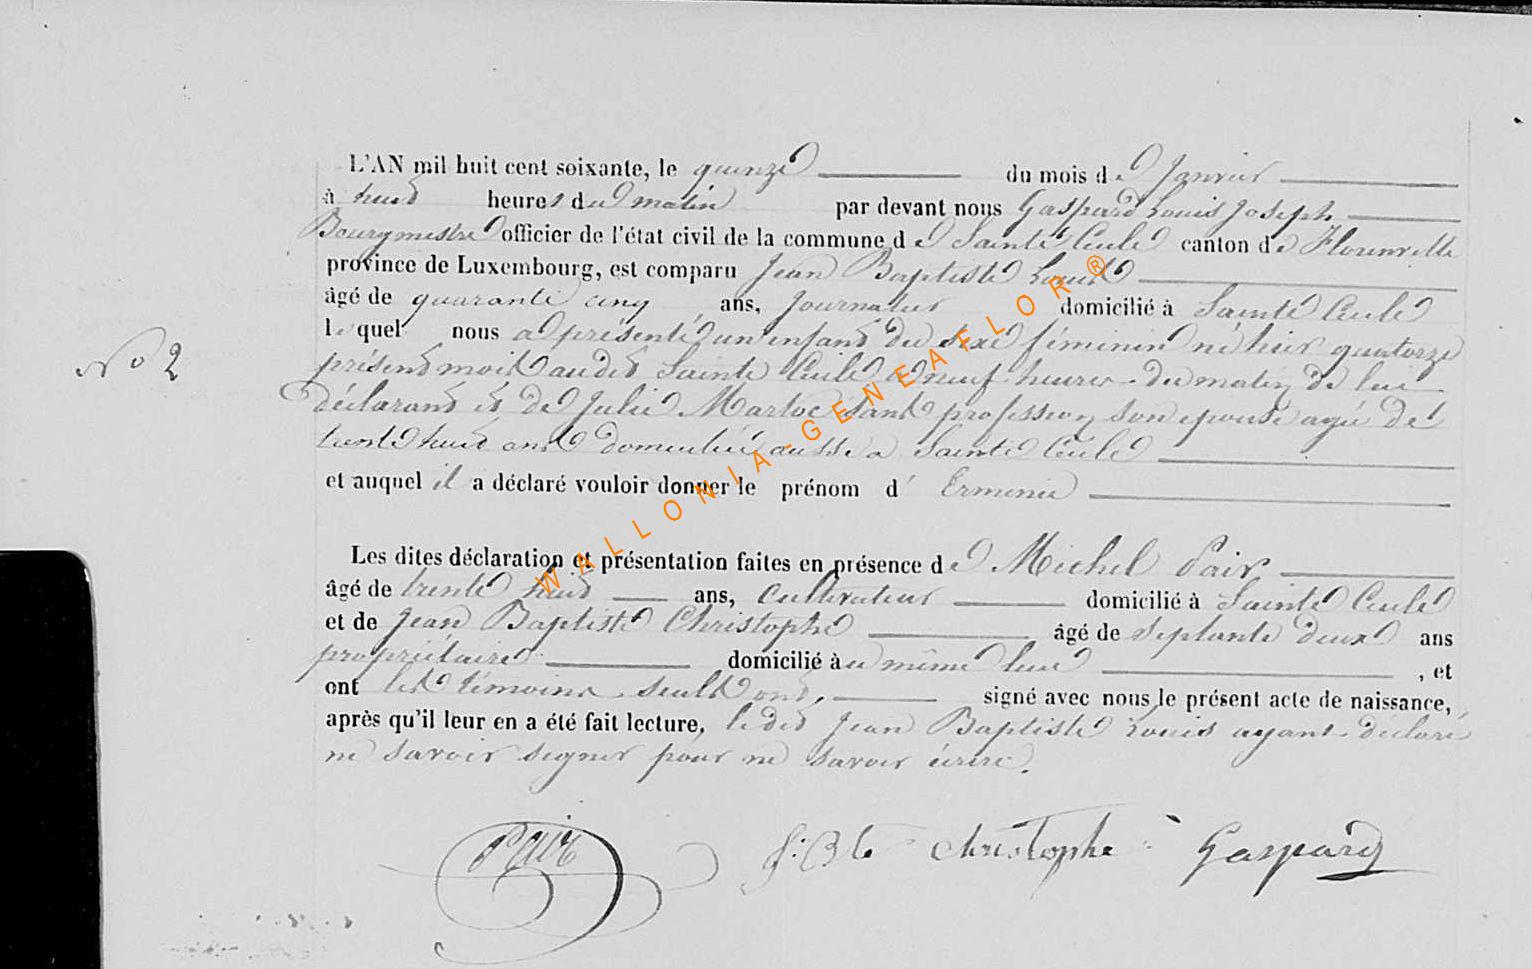 L'AN mil huit cent soixante, le quinze du mois de Janvier
à huit heures du matin par devant nous Gaspard Louis Joseph
Bourgmestre officier de l'état civil de la commune de Sainte Cecile canton de Florenville
province de Luxembourg, est comparu Jean Baptiste Louis
âgé de quarante cinq ans, Journalier domicilié à Sainte Cecile
lequel nous a présenté un enfant du sexe féminin né hier quatorze
présent mois audit Sainte Cecile à neuf heures du matin de lui
N° 2
déclarant et de Julie Marloe sans profession son épouse agée de
trente huit ans domiciliée aussi a Sainte Cecile
et auquel il a déclaré vouloir donner le prénom d' Ermenie
Les dites déclaration et présentation faites en présence de Michel Pair
âgé de trente huit ans, Cultivateur domicilié à Sainte Cecile
et de Jean Baptiste Christophe âgé de septante deux ans
propriétaire domicilié au même lieu , et
ont les témoins seuls ont, signé avec nous le présent acte de naissance,
après qu'il leur en a été fait lecture, ledit Jean Baptiste Louis ayant déclaré
ne savoir signer pour ne savoir écrire.
Pair J: Bte Christophe Gaspard
WALLONIA-GENEAFLOR ®